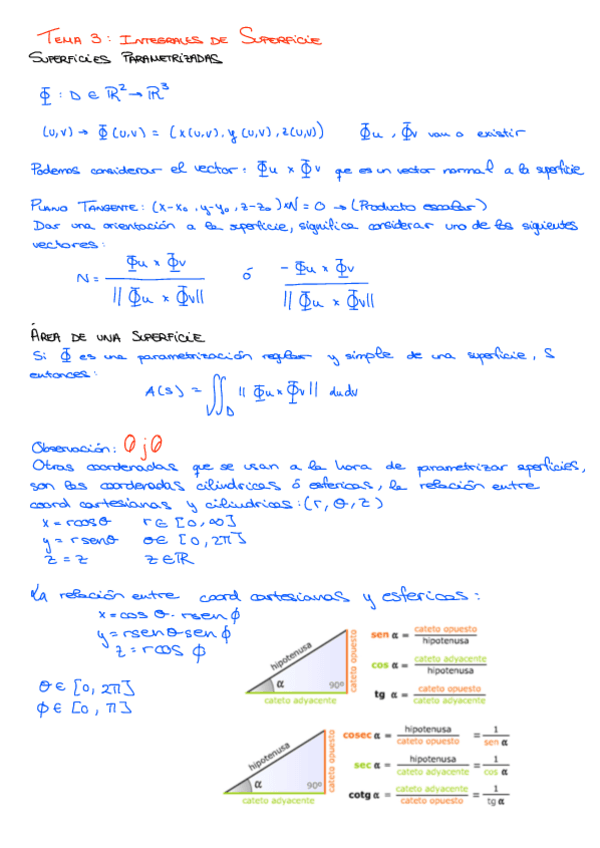 TEMA 3: INTEGRALES DE SUPERFICIE
SUPERFICIES PARAMETRIZADAS
Φ : D ∈ ℝ² → ℝ³
(u,v) → Φ(u,v) = (x(u,v), y(u,v), z(u,v))   Φu, Φv van a existir
Podemos considerar el vector: Φu × Φv que es un vector normal a la superficie
PLANO TANGENTE: (x-x₀, y-y₀, z-z₀)×N = 0 → (Producto escalar)
Dar una orientación a la superficie, significa considerar uno de los siguientes
vectores:
N = Φu × Φv / ||Φu × Φv||   ó   -Φu × Φv / ||Φu × Φv||
ÁREA DE UNA SUPERFICIE
Si Φ es una parametrización regular y simple de una superficie, S
entonces:
A(S) = ∬_D ||Φu × Φv|| dudv
Observación: OjO
Otras coordenadas que se usan a la hora de parametrizar superficies,
son las coordenadas cilíndricas ó esféricas, la relación entre
coord cartesianas y cilindricas: (r, θ, z)
x = rcosθ   r ∈ [0,∞]
y = rsenθ   θ ∈ [0,2π]
z = z   z ∈ ℝ
La relación entre coord cartesianas y esfericas:
x = cos θ · rsen φ
y = rsenθ sen φ
z = rcos φ
θ ∈ [0, 2π]
φ ∈ [0, π]
hipotenusa
cateto opuesto
α
90º
cateto adyacente
sen α = cateto opuesto / hipotenusa
cos α = cateto adyacente / hipotenusa
tg α = cateto opuesto / cateto adyacente
hipotenusa
cateto opuesto
α
90º
cateto adyacente
cosec α = hipotenusa / cateto opuesto = 1 / sen α
sec α = hipotenusa / cateto adyacente = 1 / cos α
cotg α = cateto adyacente / cateto opuesto = 1 / tg α